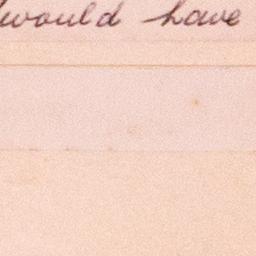 would have